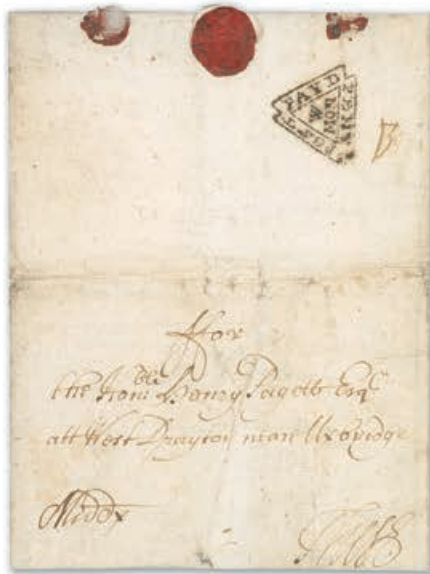 PENNY POST PAYD
W
MON
ffor
the Honble Henry Pagett Esqr
att West Drayton neare Uxbridge
Middx